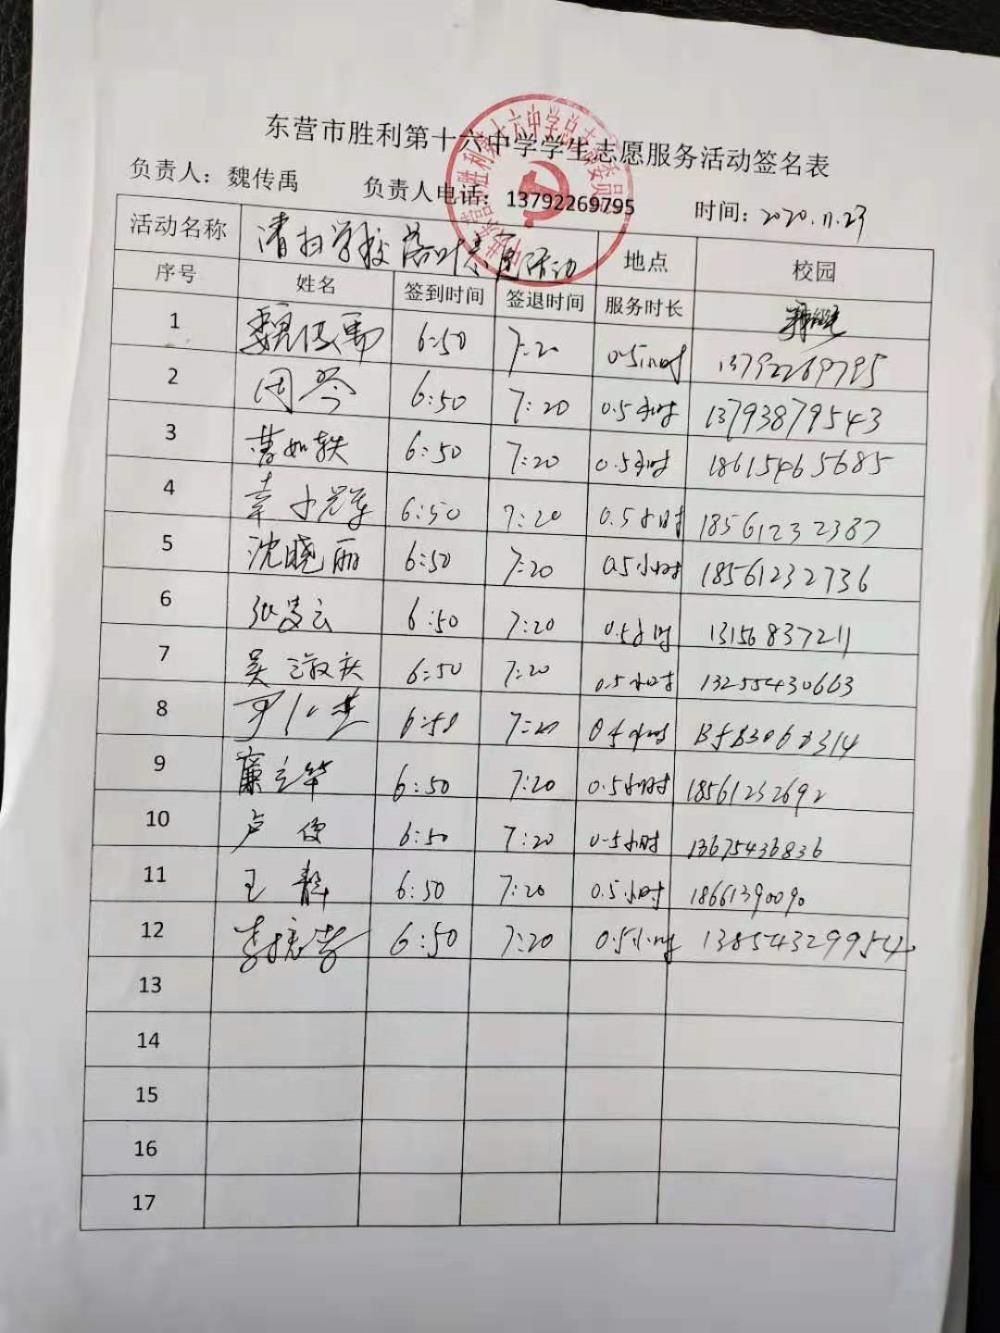 东营市胜利第十六中学学生志愿服务活动签名表
负责人：魏传禹 负责人电话：13792269795 时间：2020.11.27
活动名称 清扫学校落叶志愿活动 地点 校园
序号 姓名 签到时间 签退时间 服务时长
1 魏传禹 6:50 7:20 0.5小时 13792269795
2 周岑 6:50 7:20 0.5小时 13793879543
3 曹如轶 6:50 7:20 0.5小时 18615465685
4 6:50 7:20 0.5小时 18561232387
5 沈晓丽 6:50 7:20 0.5小时 18561232736
6 张凌云 6:50 7:20 0.5小时 13156837211
7 吴 6:50 7:20 0.5小时 13255430663
8 6:50 7:20 0.5小时
9 6:50 7:20 0.5小时 18561232692
10 卢俊 6:50 7:20 0.5小时 13675436836
11 王静 6:50 7:20 0.5小时 18661390090
12 6:50 7:20 0.5小时 13854329954
13
14
15
16
17